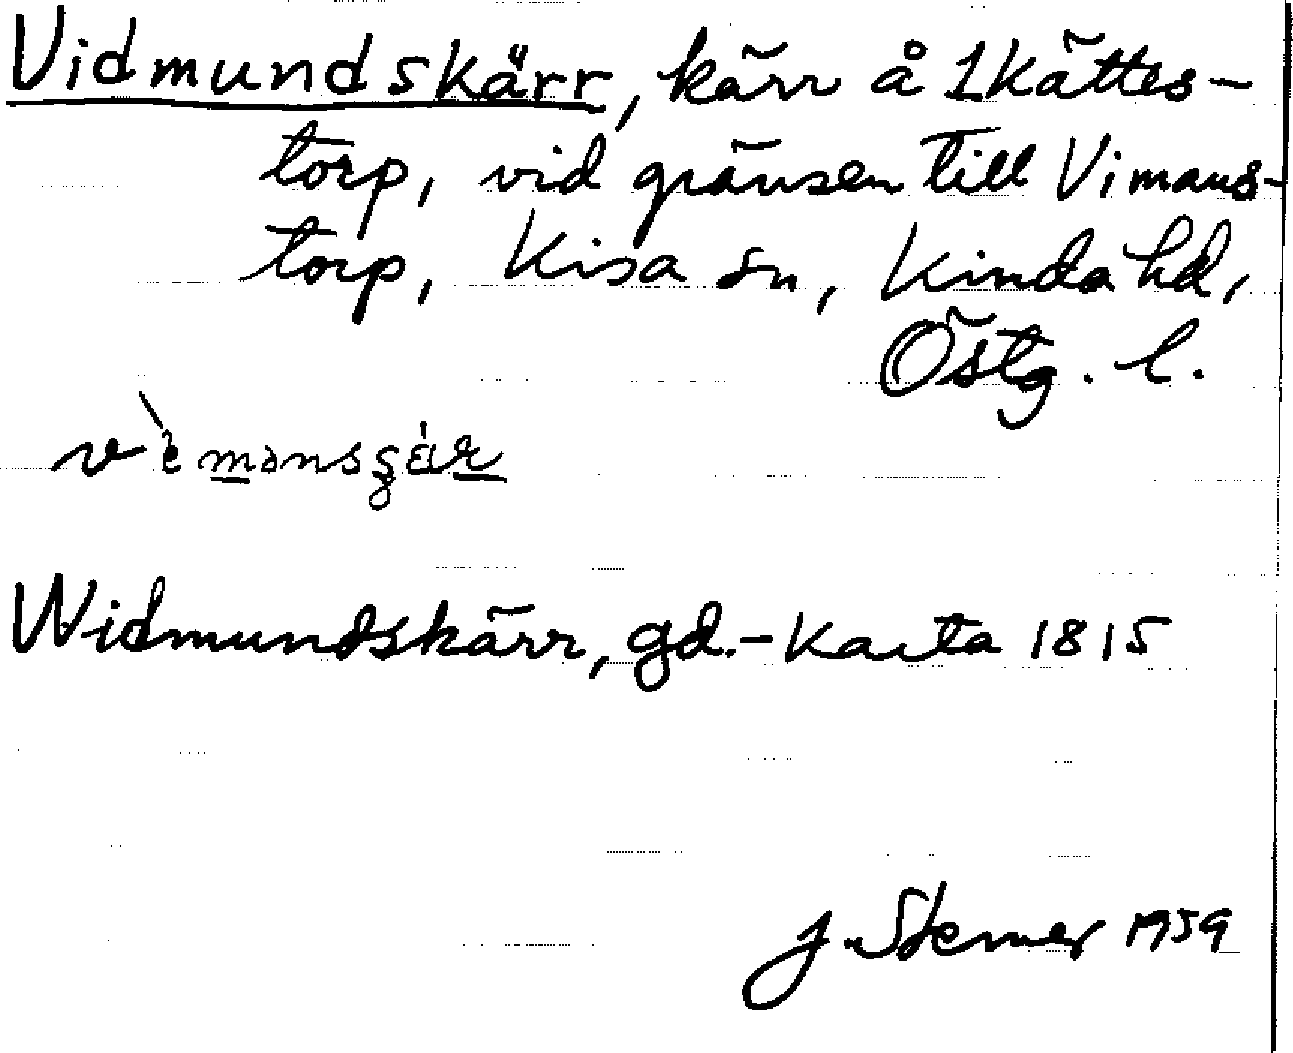 Vidmundskärr, kärr å 1 Kättes-
torp, vid gränsen till Vimans-
torp, Kisa sn, Kinda hd,
Östg. l.
Widmundskärr, gd.-karta 1815
J. Sterner 1959